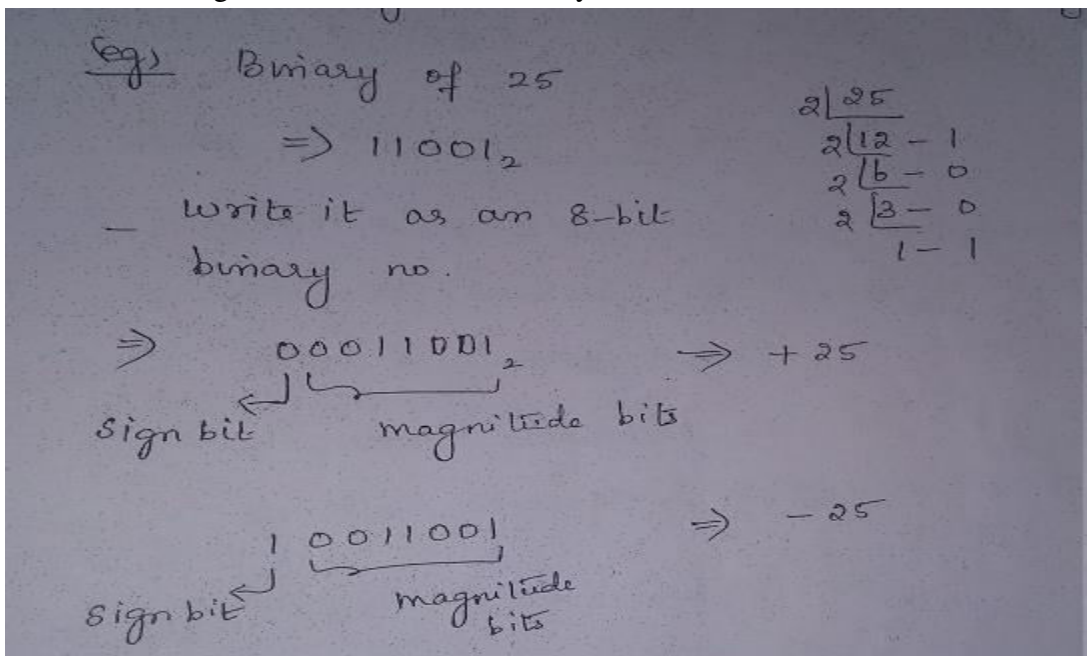 (eg) Binary of 25
⇒ 11001₂
2|25
2|12 - 1
2|6 - 0
2|3 - 0
1 - 1
- Write it as an 8-bit
binary no.
⇒ 00011001₂ ⇒ +25
Sign bit magnitude bits
1 0011001 ⇒ -25
Sign bit magnitude
bits